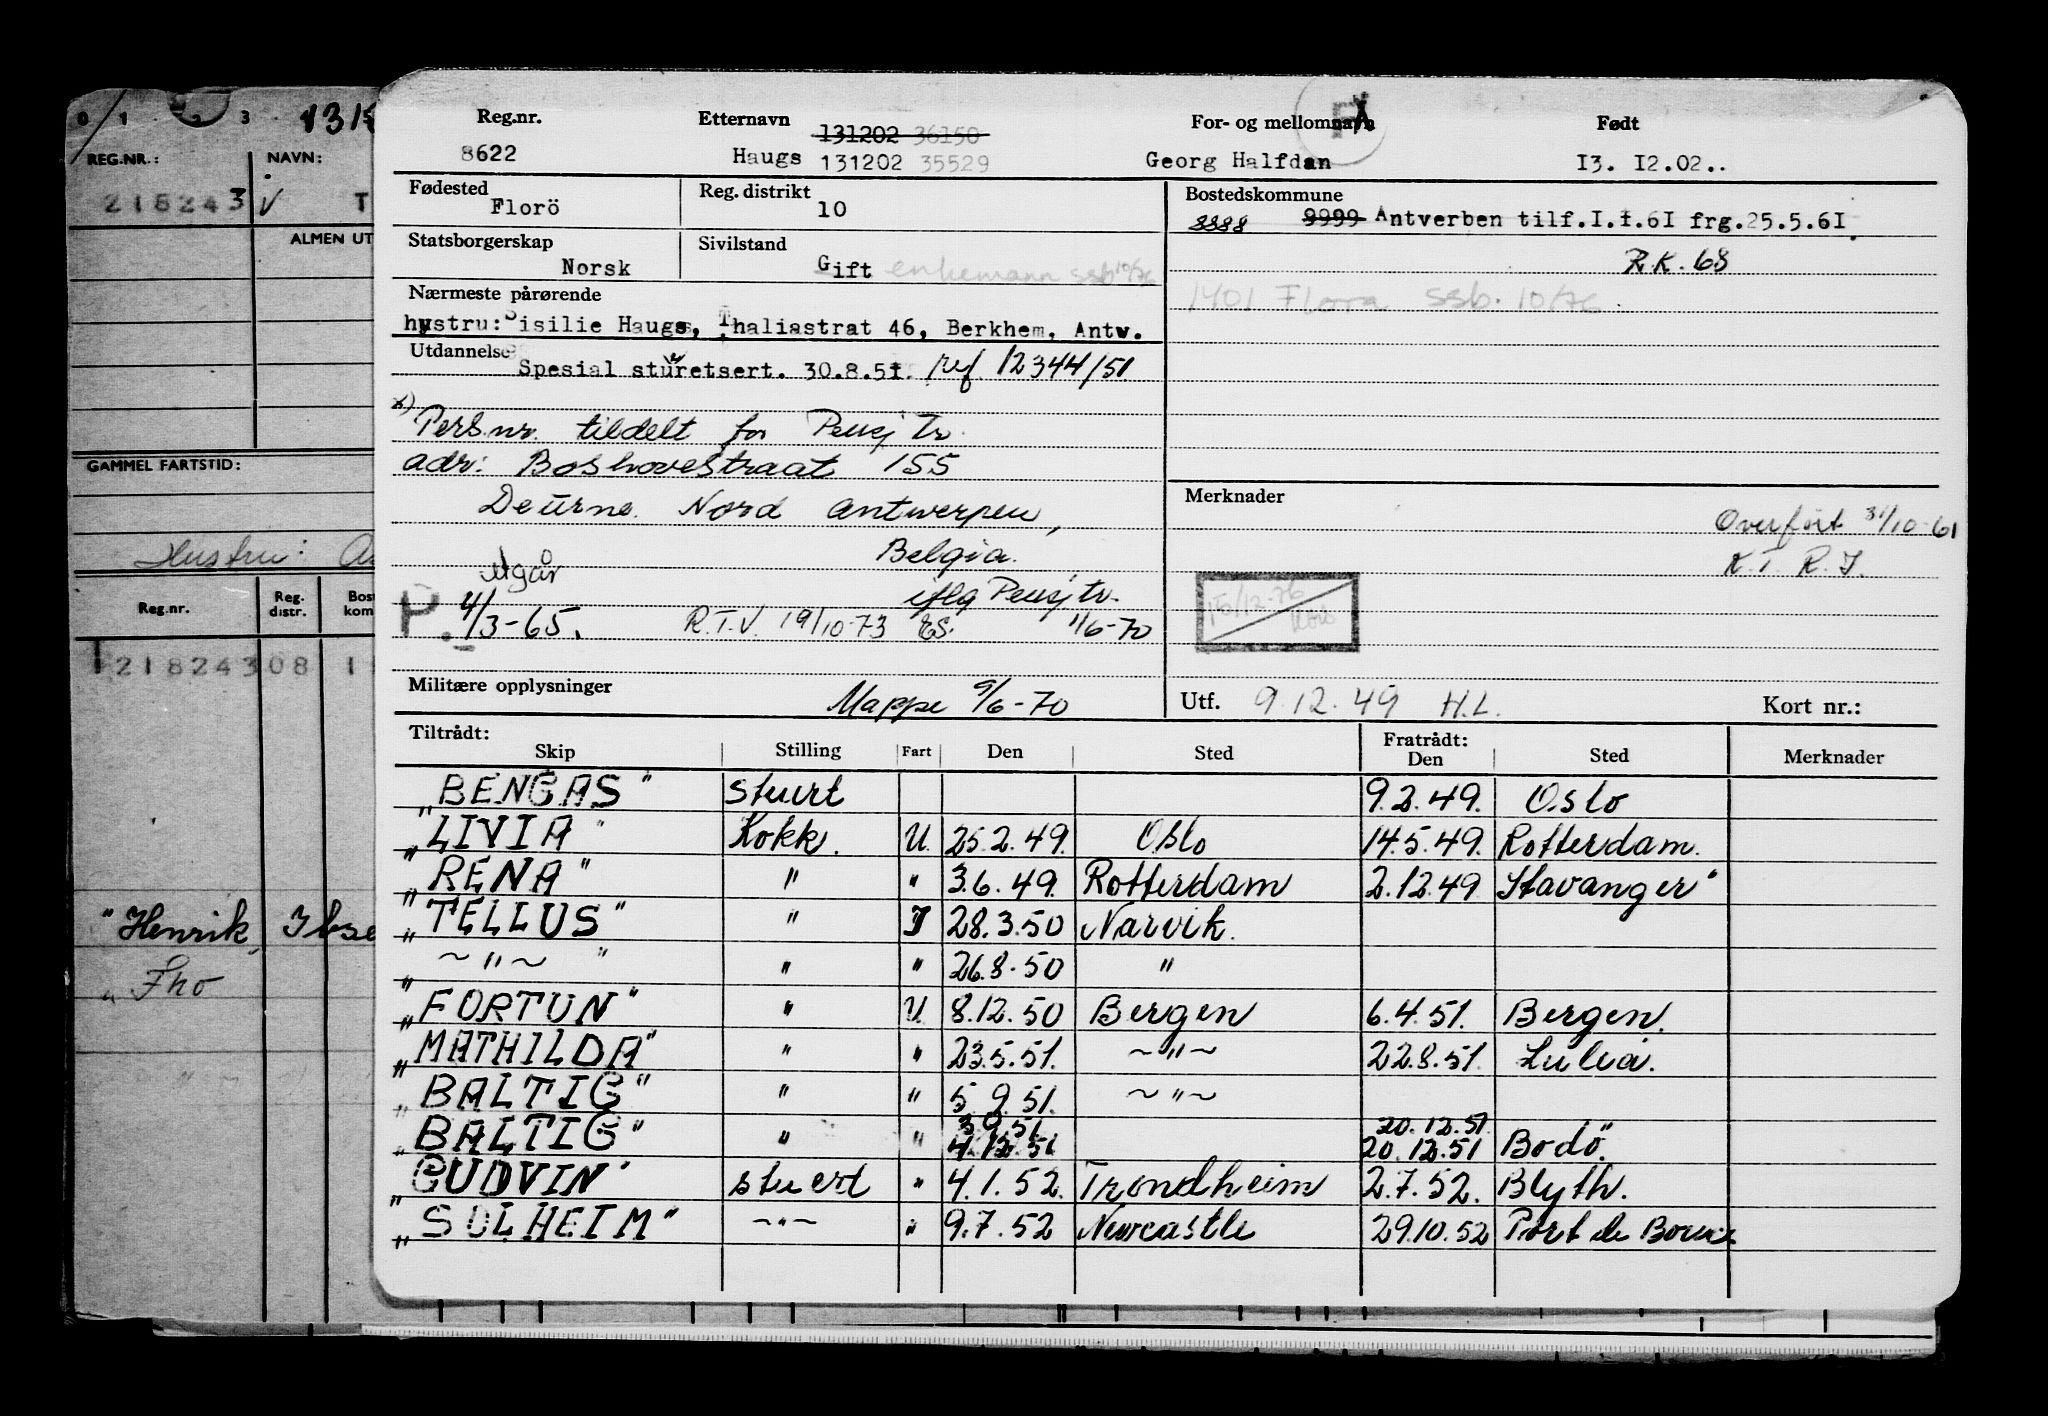 0 1 2 3 1315
REG.NR.: NAVN:
218243 T
ALMEN UT
GAMMEL FARTSTID:
Hustru:
Reg.nr. Reg. distr. Bost kom
121824308 1
"Henrik Ibse
" Tho
Reg.nr. Etternavn For- og mellomnavn Født
131202 36150
8622 Haugs 131202 35529 Georg Halfdan I3. I2.02..
Fødested Reg. distrikt Bostedskommune
Florö 10 8888 9999 Antverben tilf.I.I.6I frg.25.5.6I.
Statsborgerskap Sivilstand
Norsk Gift enkemann ssb 10/76 R.K. 68
Nærmeste pårørende 1401 Flora ssb. 10/76
hustru: Sisilie Haugs, Thaliastrat 46, Berkhem, Antw.
Utdannelse
Spesial sturetsert. 30.8.51. ref 12344/51
x) Persnr. tildelt for Pensj Tr.
adr: Boshovestraat 155
Deurne Nord Antwerpen,
Belgia.
Merknader
Overført 31/10-61
K.T. R.J.
utgår
iflg Pensj tr.
P. 4/3-65. R.T.V. 19/10-73 ES. 1/6-70
15/12-76
Militære opplysninger Mappe 9/6-70 Utf. 9.12.49 H.L. Kort nr.:
Tiltrådt: Fratrådt:
Skip Stilling Fart Den Sted Den Sted Merknader
"BENGAS" stuert 9.2.49. Oslo
"LIVIA" Kokk. U. 25.2.49. Oslo 14.5.49. Rotterdam.
"RENA" " " 3.6.49. Rotterdam 2.12.49 Stavanger"
"TELLUS" " J 28.3.50 Narvik.
"~"~" " " 26.8.50 "
"FORTUN" " U. 8.12.50 Bergen 6.4.51. Bergen.
"MATHILDA" " " 23.5.51. ~"~ 22.8.51. Luleå.
"BALTIG" " " 5.9.51. ~"~
3.9.51. 20.12.51
"BALTIG" " " 4.12.51 20.12.51 Bodö.
"GUDVIN" stuert " 4.1.52. Trondheim 2.7.52. Blyth.
"SOLHEIM" ~"~ " 9.7.52 Newcastle 29.10.52 Port de Bouc